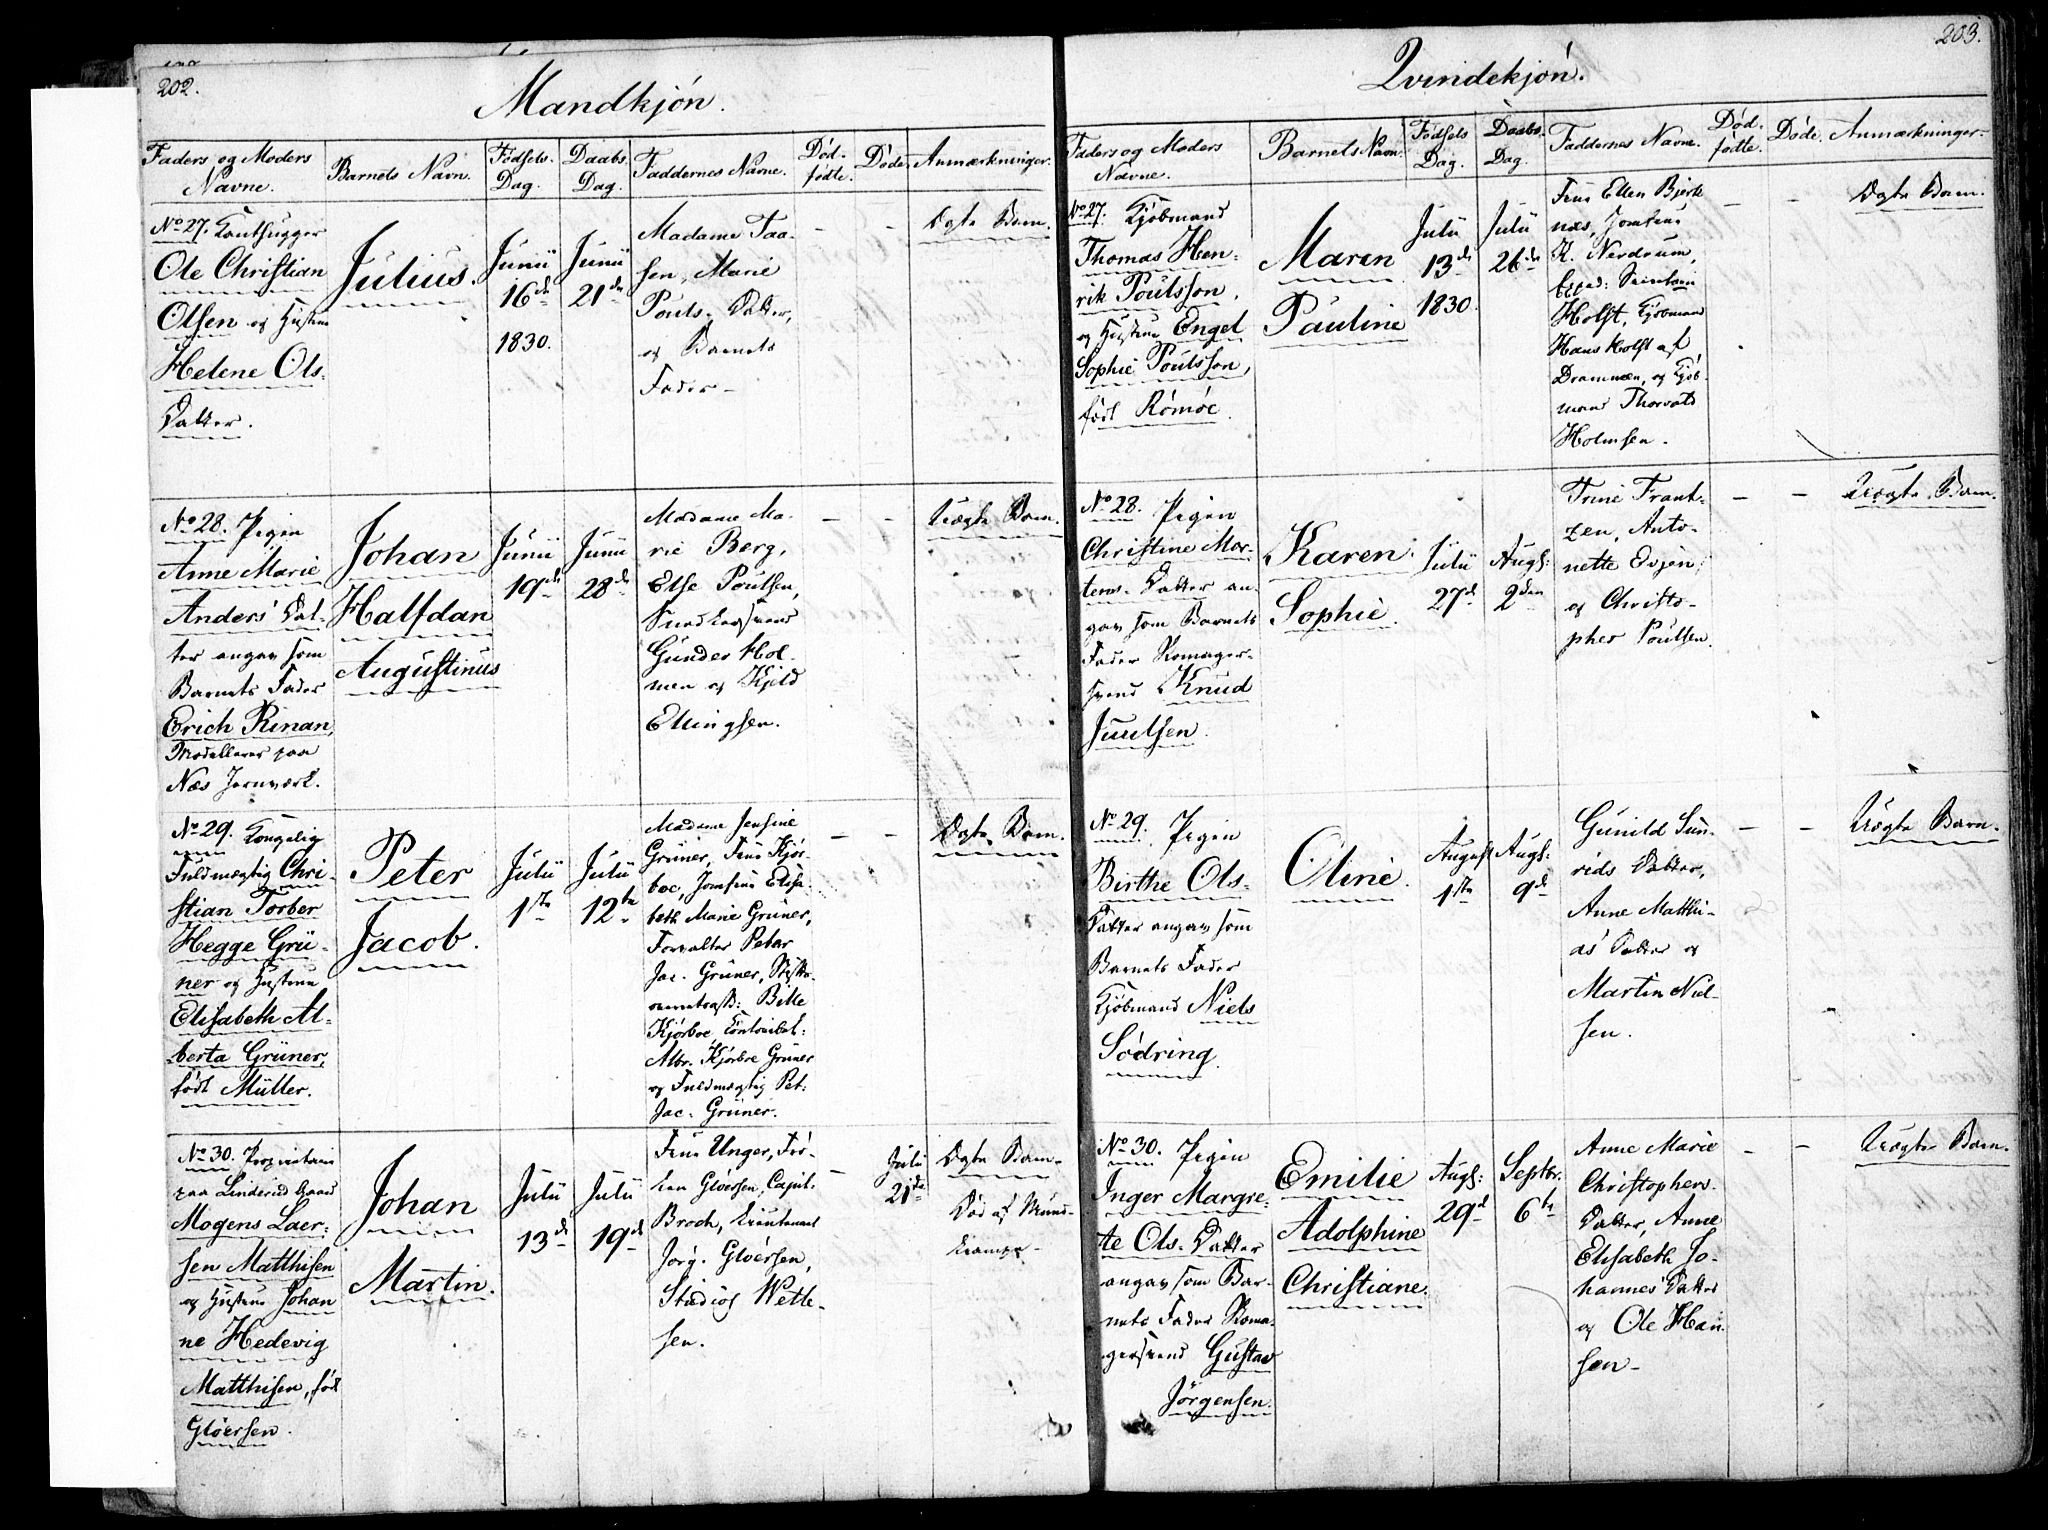 202.
Mandkjøn.
Faders og Moders Navne.
Barnets Navn.
Fødsels-Dag.
Daabs Dag.
Faddernes Navne.
Død-fødte.
Døde.
Anmærkninger.
No 27.
Ole Christian
Olsen og Hustru
Helene Ols-
Datter.
Julius.
Junii
16de
1830.
Junii
21de
Madame Taa-
sen, Marie
Pouls-Datter,
og Barnets
Fader -
Ægte Barn.
No 28. Pigen
Anne Marie
Anders' Dat-
ter angav som
Barnets Fader
Erich Rinan,
Modellerer paa
Næs Jernværk.
Johan
Halfdan
Augustinus
Junii
19de
Junii
28de
Madame Ma-
rie Berg,
Else Poulsen,
Gunder Hol-
men og Kjeld
Ellingsen.
Uægte Barn.
No 29. Kongelig
Fuldmægtig Chri-
stian Torber
Hegge Grü-
ner og Hustrue
Elisabeth Al-
berta Grüner,
født Müller.
Peter
Jacob.
Julii
1ste
Julii
12te
Madame Jensine
Grüner, Frue Kjør-
boe, Jomfrue Elisa-
beth Marie Grüner,
Forvalter Peter
Jac. Grüner,
Bille
Kjørboe,
Albr. Kjørboe Grüner
og Fuldmægtig Pet:
Jac. Grüner.
Ægte Barn.
No 30. Proprietair
paa Linderud Gaard
Mogens Laer-
sen Matthisen
og Hustrue Johan
ne Hedevig
Matthisen, født
Gløersen.
Johan
Martin.
Julii
13de
Julii
19de
Frue Unger, Frø-
ken Gløersen, Capit:
Broch, Lieutenant
Jørg. Gløersen,
Studios Wette-
sen.
Julii
21de
Ægte Barn
Død af Mund-
krampe -
203.
Qvindekjøn.
Faders og Moders
Navne.
Barnets Navn.
Fødsels
Dag.
Daabs-
Dag.
Faddernes Navne.
Død-
fødte.
Døde.
Anmærkninger.
No 27. Kjøbmand
Thomas Hen-
rik Poulsson,
og Hustrue Engel
Sophie Poulsson,
født Rømøe.
Maren
Pauline
Julii
13de
1830.
Julii
26de
Frue Ellen Bjerk
næs, Jomfrue
K. Nerdrum,
Holst, Kjøbmand
Hans Holst af
Drammen, og Kjøb-
mand Thorvald
Holmsen.
Ægte Barn.
No 28. Pigen
Christine Mor-
tens-Datter an-
gav som Barnets
Fader Skomager-
svend Knud
Juulsen.
Karen
Sophie.
Julii
27de
Augs:
2den
Trine Frant-
zen, Anto-
nette Evjen,
og Christo-
pher Poulsen.
Uægte Barn.
No 29. Pigen
Birthe Ols-
Datter angav som
Barnets Fader
Kjøbmand Niels
Sødring.
Oline.
August
1ste
Augs:
9de
Gunild Sun-
rids Datter,
Anne Matthi-
as' Datter og
Martin Niel-
sen.
Uægte Barn.
No 30. Pigen
Inger Margre-
te Ols-Datter
angav som Bar-
nets Fader Skoma-
gersvend Gustav
Jørgensen.
Emilie
Adolphine
Christiane.
Augs:
29de
Septbr.
6te
Anne Marie
Christophers-
Datter, Anne
Elisabeth Jo-
hannes' Datter
og Ole Han-
sen -
Uægte Barn.